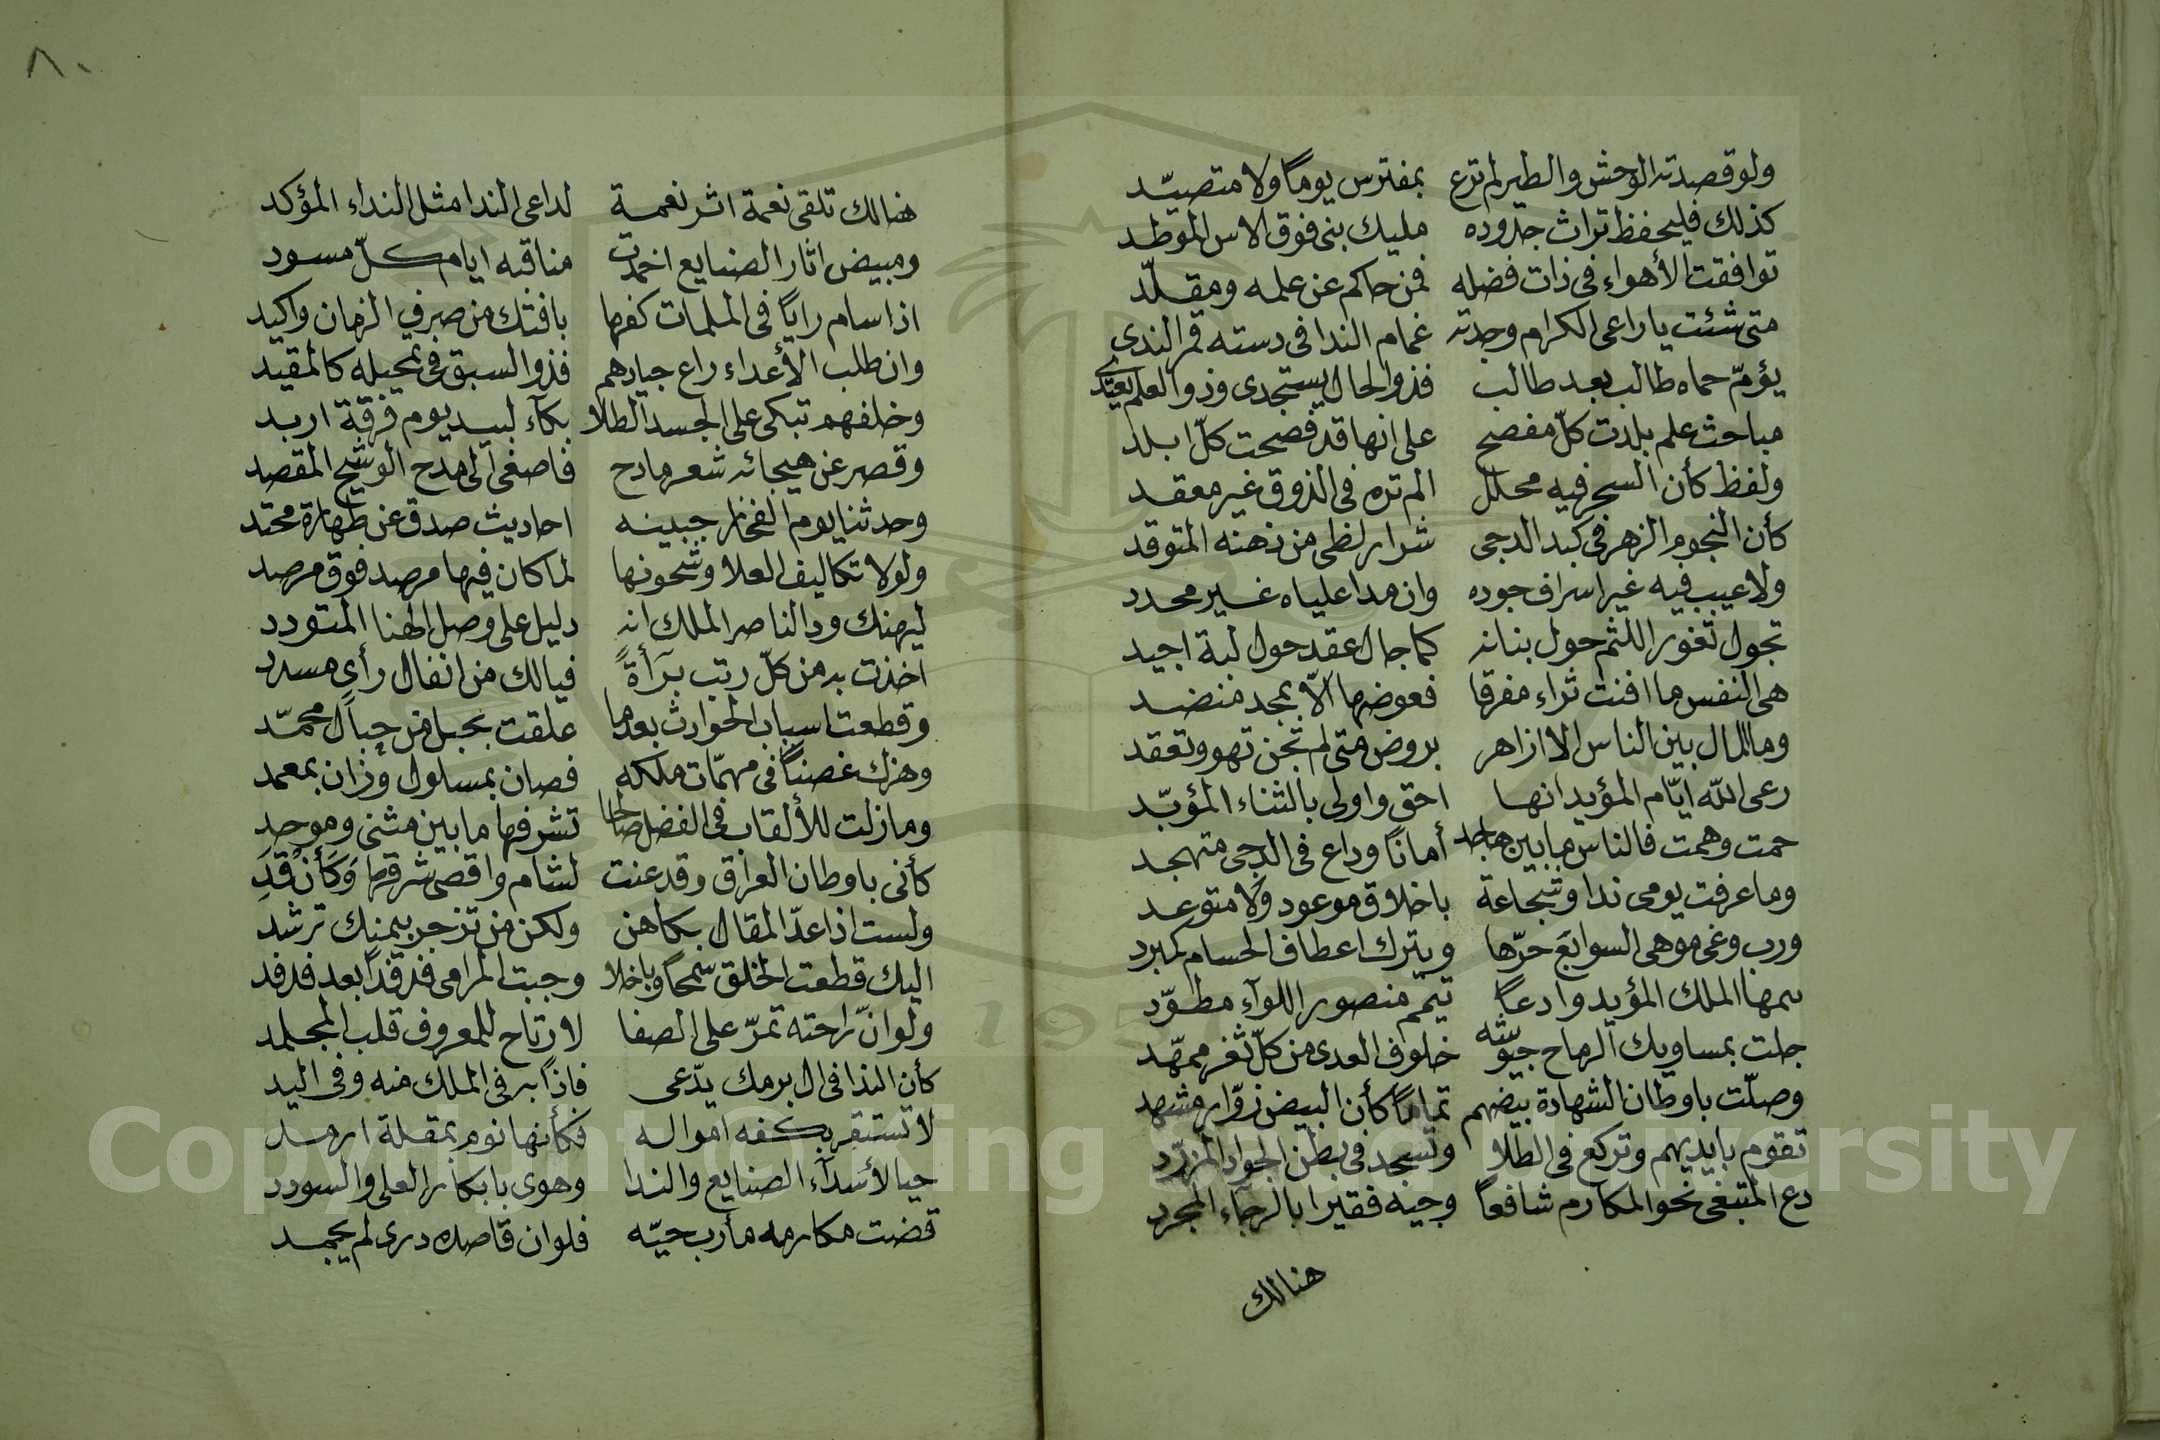 ولو قصدته الوحش والطير لم ترع بمفترس يوماً ولا متصيّد
كذلك فليحفظ تراث جدوده مليك بنى فوق الاس الموطد
توافقت الأهواء فى ذات فضله فمن حاكم عن علمه ومقلّد
متى شئت يا راعى الكرام وجدته غمام الندا فى دسته قمر الندى
يؤمّ حماه طالب بعد طالب فذوا الحال يستجدى وذو العلم يجتدى
مباحث علم بلدت كلّ مفصح على انها قد فصحت كلّ ابلد
ولفظ كأن السحر فيه محلل الم تره فى الذوق غير معقد
كأن النجوم الزهر فى كبد الدجى شرار لظى من ذهنه المتوقد
ولا عيب فيه غير اسراف جوده وان مدا علياه غير محدد
تجول ثغور اللثم حول بنانه كما جال عقد حول لبة اجيد
هى النفس ما افنت ثراء مفرقا فعوضها الّا بمجد منضد
وما المال بين الناس الا ازاهر بروض متى لم تجن تهوو تعقد
رعى الله ايّام المؤيد انها احق واولى بالثناء المؤبّد
حمت وهمت فالناس ما بين هاجد أماناً وداع فى الدجى متهجد
وما عرفت يومى ندا وشجاعة باخلاق موعود ولا متوعد
ورب وغى موهى السوابغ حرّها ويترك اعطاف الحسام كمبرد
سمها الملك المؤيد وادعاً تيمم منصور اللوآء مطوّد
جلت بمساويك الرماح جيوشه خلوف العدى من كلّ ثغر ممهّد
وصلّت باوطان الشهادة بيضهم تماماً كأن البيض زوّار مشهد
تقوم بايديهم وتركع فى الطلا وتسجد فى بطن الجواد المزرّد
دع المبتغى نحو المكارم شافعاً وجيه فقيرا بالرجاء المجرد
هنالك
٨٠
هنالك تلقى نغمة اثر نغمة لداعى الندا مثل النداء المؤكد
ومبيض اثار الصنايع اخمدت مناقبه ايام كلّ مسود
اذا سام راياً فى الملمات كفها بافتك من صرفي الزمان واكيد
وان طلب الأعداء راع جيادهم فذوا السبق فى تحيله كالمقيد
وخلفهم تبكى على الجسد الطلا بكآء لبيد يوم فرقة اربد
وقصر عن هيجائه شعر مادح فاصغى الى مدح الوشيح المقصد
وحدثنا يوم الفخار جبينه احاديث صدق عن طهارة محتد
ولولا تكاليف العلا وشحونها لما كان فيها مرصد فوق مرصد
ليهنك ود الناصر الملك انه دليل على وصل الهنا المتودد
اخذت به من كلّ رتب برآءة فيالك من انفال رأى مسدد
وقطعت اسباب الحوادث بعدما علقت بحبل من حبال محمّد
وهزك غصناً فى مهمّات ملكه فصان بمسلول وزان بمعمد
وما زلت للألقاب فى الفضل صالحا تشرفها ما بين مثنى وموحد
كأنى باوطان العراق وقد عنت لشام واقصى شرقها وَكَأن قَدِ
ولست اذا عدّ المقال بكاهن ولكن من تزجر بيمنك ترشد
اليك قطعت الخلق سمحاً وباخلا وجبت المرامى فدفداً بعد فدفد
ولو انّ راحته تمرّ على الصفا لارتاح للمعروف قلب الجلمد
كأن الندا فى ال برمك يدّعى فاذا بر فى الملك منه وفى اليد
لا تستقر بكفه امواله فكأنها نوم بمقلة ارمد
حيا لأسدآء الصنايع والندا وهوى بابكار العلى والسودد
قضت مكارمه مأرب حيّه فلو ان قاصده درى لم يحمد